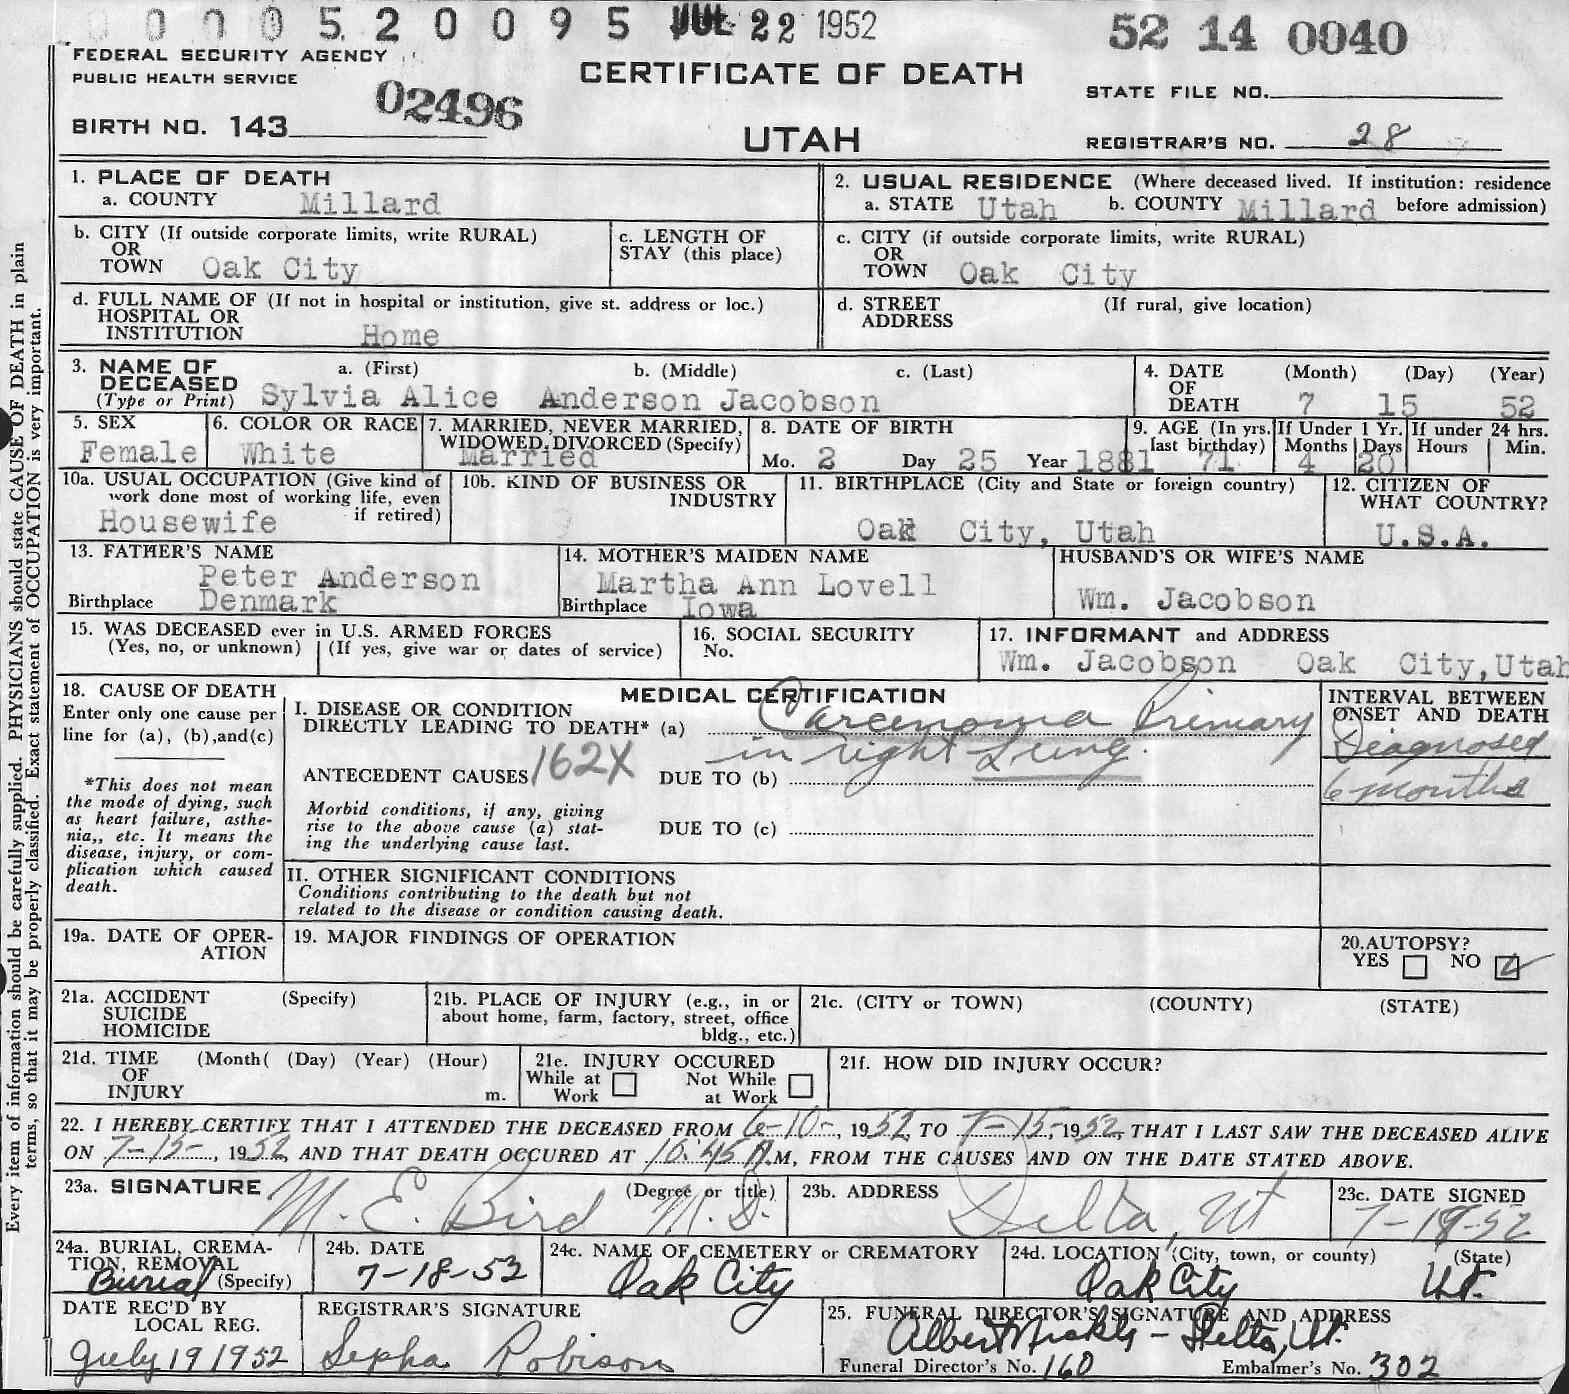 0 0 0 0 5 2 0 0 9 5 JUL 22 1952 52 14 0040
FEDERAL SECURITY AGENCY
PUBLIC HEALTH SERVICE
CERTIFICATE OF DEATH
STATE FILE NO.
02496
BIRTH NO. 143
UTAH
REGISTRAR'S NO. 28
1. PLACE OF DEATH
a. COUNTY Millard
2. USUAL RESIDENCE (Where deceased lived. If institution: residence
a. STATE Utah b. COUNTY Millard before admission)
b. CITY (If outside corporate limits, write RURAL)
OR
TOWN Oak City
c. LENGTH OF
STAY (this place)
c. CITY (if outside corporate limits, write RURAL)
OR
TOWN Oak City
d. FULL NAME OF (If not in hospital or institution, give st. address or loc.)
HOSPITAL OR
INSTITUTION Home
d. STREET (If rural, give location)
ADDRESS
3. NAME OF a. (First) b. (Middle) c. (Last)
DECEASED
(Type or Print) Sylvia Alice Anderson Jacobson
4. DATE (Month) (Day) (Year)
OF
DEATH 7 15 52
5. SEX
Female
6. COLOR OR RACE
White
7. MARRIED, NEVER MARRIED,
WIDOWED, DIVORCED (Specify)
Married
8. DATE OF BIRTH
Mo. 2 Day 25 Year 1881
9. AGE (In yrs.
last birthday)
71
If Under 1 Yr.
Months Days
4 20
If under 24 hrs.
Hours Min.
10a. USUAL OCCUPATION (Give kind of
work done most of working life, even
if retired)
Housewife
10b. KIND OF BUSINESS OR
INDUSTRY
11. BIRTHPLACE (City and State or foreign country)
Oak City, Utah
12. CITIZEN OF
WHAT COUNTRY?
U.S.A.
13. FATHER'S NAME
Peter Anderson
Birthplace Denmark
14. MOTHER'S MAIDEN NAME
Martha Ann Lovell
Birthplace Iowa
HUSBAND'S OR WIFE'S NAME
Wm. Jacobson
15. WAS DECEASED ever in U.S. ARMED FORCES
(Yes, no, or unknown) (If yes, give war or dates of service)
16. SOCIAL SECURITY
No.
17. INFORMANT and ADDRESS
Wm. Jacobson Oak City,Utah
18. CAUSE OF DEATH
Enter only one cause per
line for (a), (b),and(c)
*This does not mean
the mode of dying, such
as heart failure, asthe-
nia,, etc. It means the
disease, injury, or com-
plication which caused
death.
MEDICAL CERTIFICATION
I. DISEASE OR CONDITION
DIRECTLY LEADING TO DEATH* (a) Carcenoma Primary
in right Lung.
ANTECEDENT CAUSES 162X DUE TO (b)
Morbid conditions, if any, giving
rise to the above cause (a) stat-
ing the underlying cause last.
DUE TO (c)
INTERVAL BETWEEN
ONSET AND DEATH
Diagnosed
6 months
II. OTHER SIGNIFICANT CONDITIONS
Conditions contributing to the death but not
related to the disease or condition causing death.
19a. DATE OF OPER-
ATION
19. MAJOR FINDINGS OF OPERATION
20.AUTOPSY?
YES NO
21a. ACCIDENT (Specify)
SUICIDE
HOMICIDE
21b. PLACE OF INJURY (e.g., in or
about home, farm, factory, street, office
bldg., etc.)
21c. (CITY or TOWN) (COUNTY) (STATE)
21d. TIME (Month( (Day) (Year) (Hour)
OF
INJURY m.
21e. INJURY OCCURED
While at Not While
Work at Work
21f. HOW DID INJURY OCCUR?
22. I HEREBY CERTIFY THAT I ATTENDED THE DECEASED FROM 6-10-, 1952, TO 7-15-, 1952, THAT I LAST SAW THE DECEASED ALIVE
ON 7-15-, 1952, AND THAT DEATH OCCURED AT 10:45 A.M, FROM THE CAUSES AND ON THE DATE STATED ABOVE.
23a. SIGNATURE (Degree or title)
M. E. Bird M.D.
23b. ADDRESS
Delta, Ut
23c. DATE SIGNED
7-19-52
24a. BURIAL, CREMA-
TION, REMOVAL
Burial (Specify)
24b. DATE
7-18-52
24c. NAME OF CEMETERY or CREMATORY
Oak City
24d. LOCATION (City, town, or county) (State)
Oak City Ut.
DATE REC'D BY
LOCAL REG.
July 19 1952
REGISTRAR'S SIGNATURE
Sepha Robison
25. FUNERAL DIRECTOR'S SIGNATURE AND ADDRESS
Albert Nickle - Delta, Ut.
Funeral Director's No. 160 Embalmer's No. 302
Every item of information should be carefully supplied. PHYSICIANS should state CAUSE OF DEATH in plain
terms, so that it may be properly classified. Exact statement of OCCUPATION is very important.